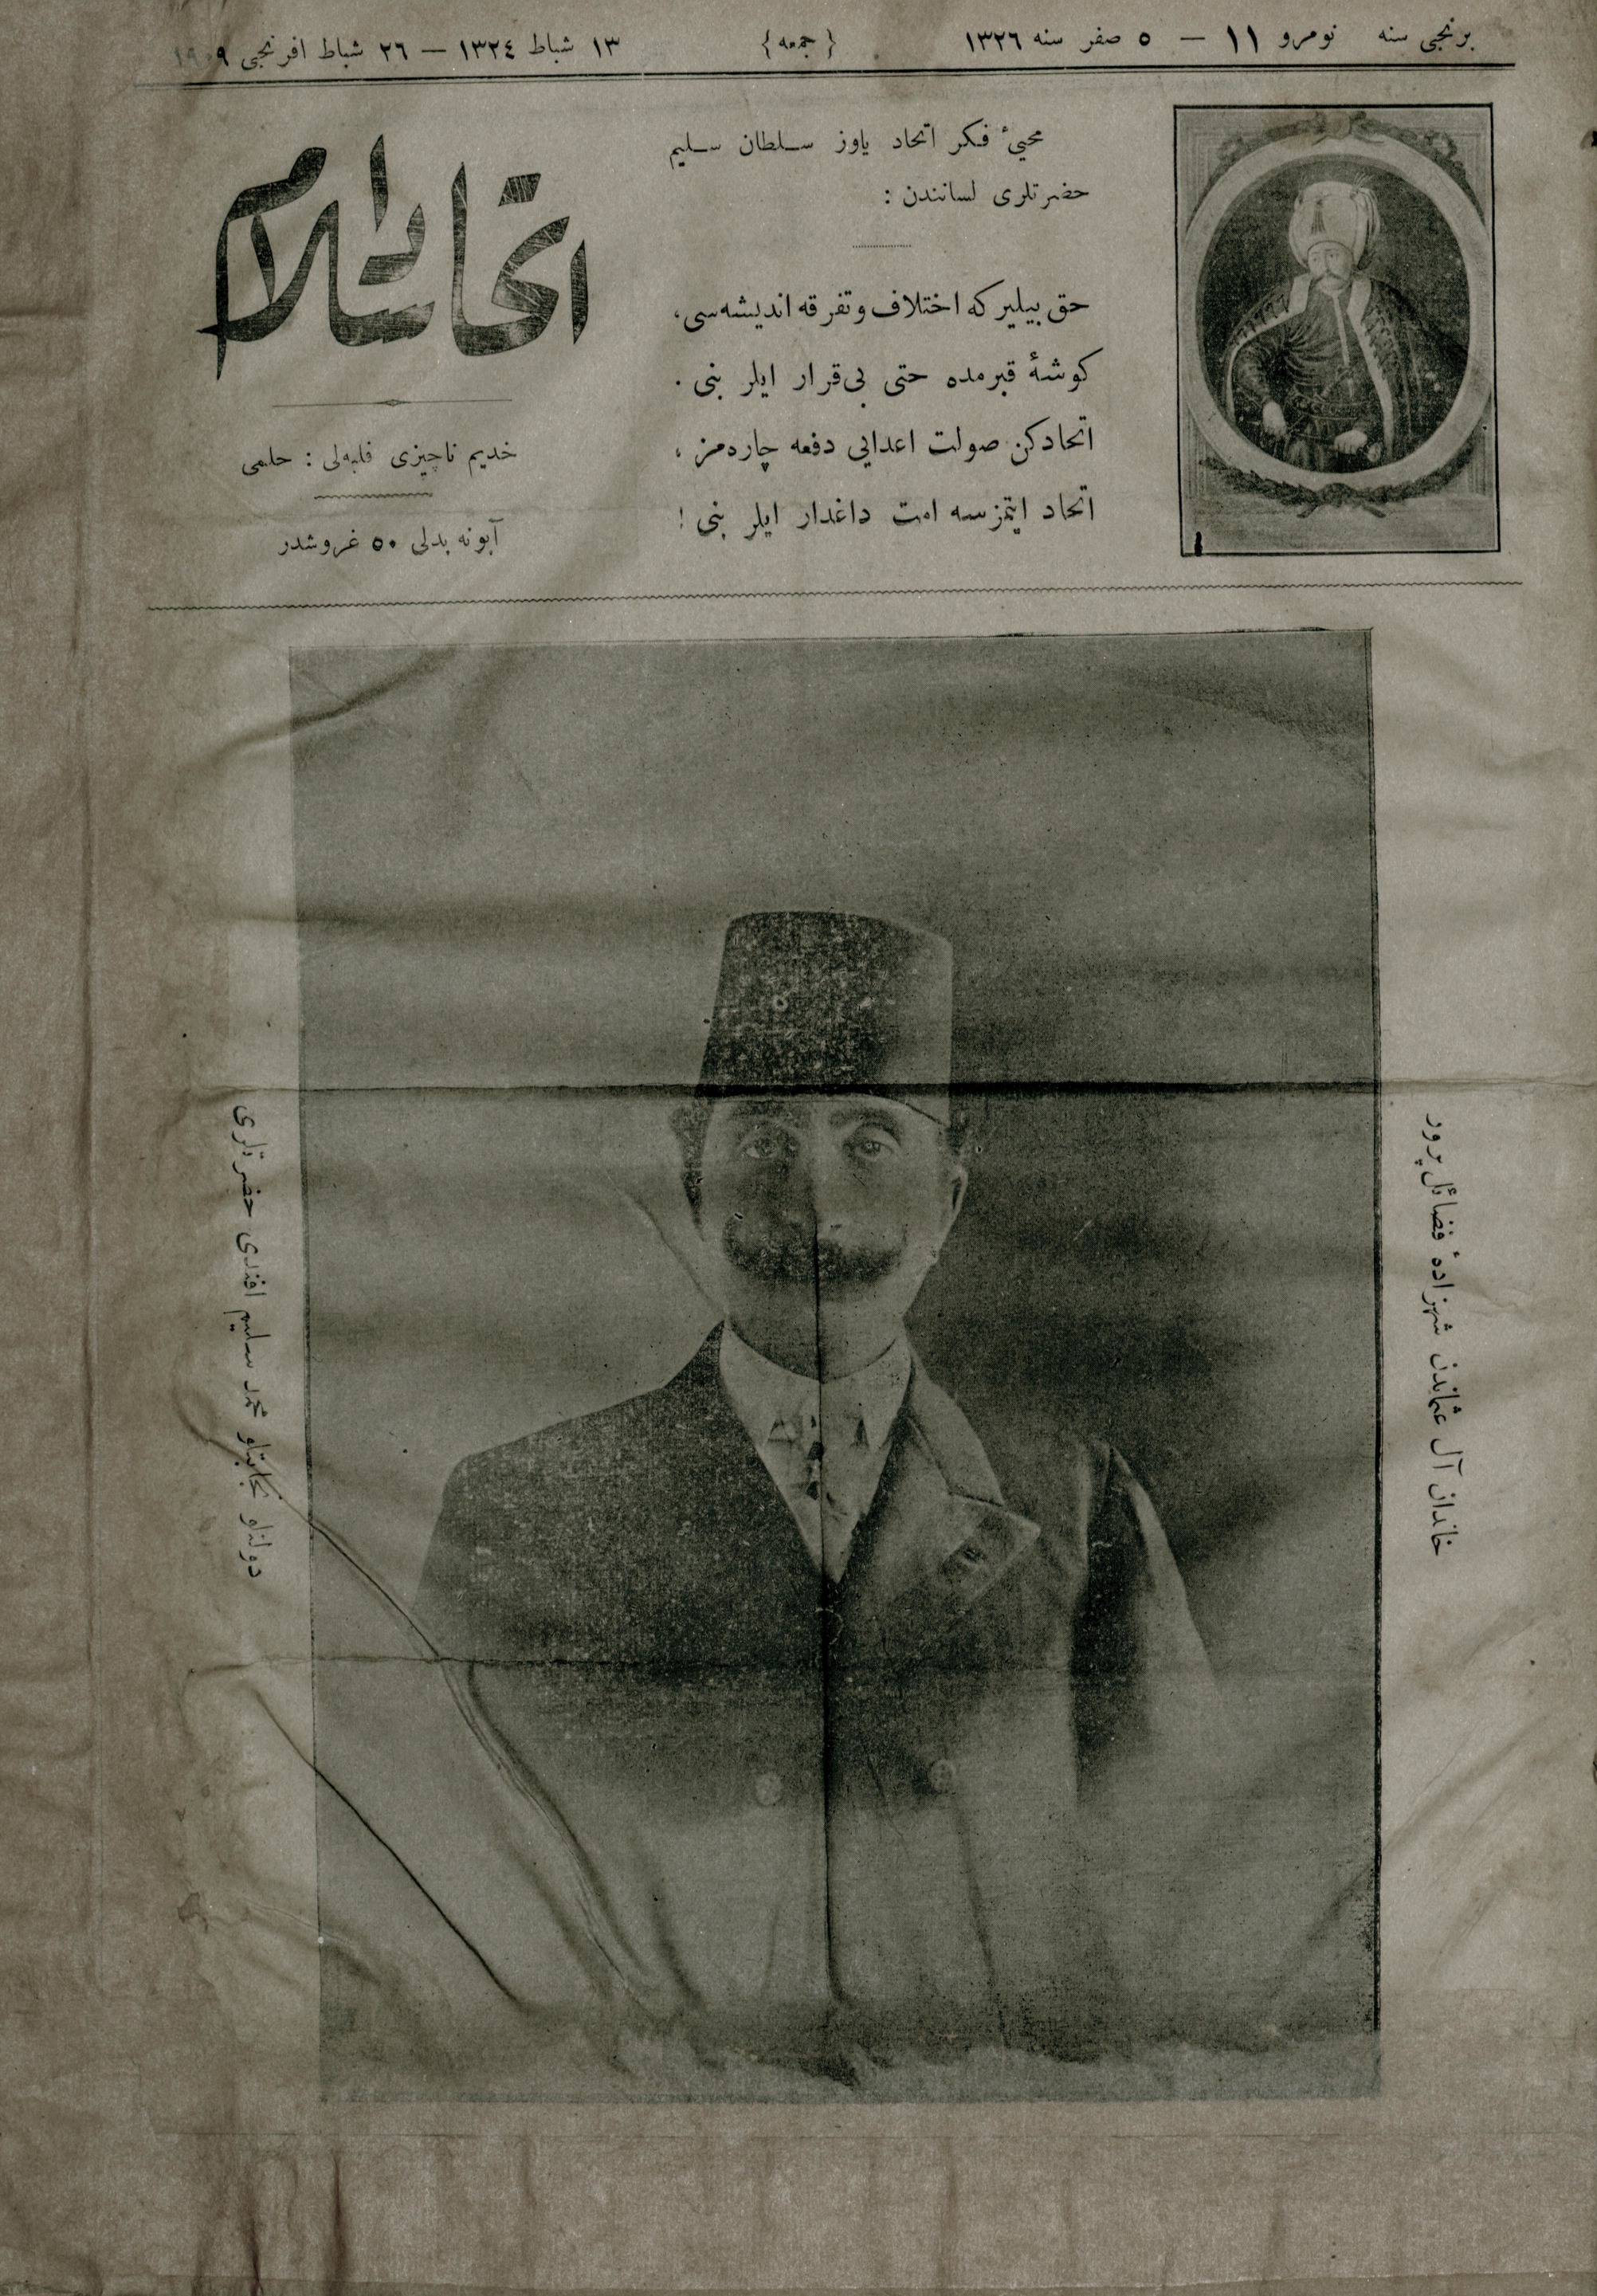 برنجی سنه نومرو ١١ — ٥ صفر سنه ١٣٢٦ {جمعه} ١٣ شباط ١٣٢٤ — ٢٦ شباط افرنجی ١٩٠٩
محیئ فكر اتحاد یاوز سلطان سلیم
حضرتلری لسانندن :
حق بیلیر كه اختلاف و تفرقه اندیشه‌سی،
كوشهٔ قبرمده حتی بی‌قرار ایلر بنی .
اتحادكن صولت اعدایی دفعه چاره‌مز ،
اتحاد ایتمزسه امت داغدار ایلر بنی !
اتحاد اسلام
خدیم ناچیزی فلبه‌لی : حلمی
آبونه بدلی ٥٠ غروشدر
خاندان آل عثماندن شهزادهٔ فضائل‌پرور
دولتلو نجابتلو محمد سلیم افندی حضرتلری